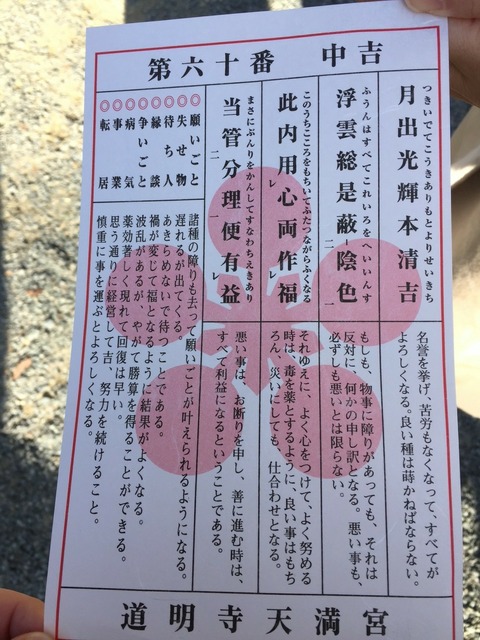 第六十番　中吉
つきいでてこうきありもとよりせいきち
月出光輝本清吉
名誉を挙げ、苦労もなくなって、すべてが
よろしくなる。良い種は蒔かねばならない。
ふうんはすべてこれいろをへいいんす
浮雲総是蔽二陰色一
もしも、物事に障りがあっても、それは
反対に、何かの申し訳となる。悪い事も、
必ずしも悪いとは限らない。
このうちこころをもちいてふたつながらふくなる
此内用レ心両作レ福
それゆえに、よく心をつけて、よく努める
時は、毒を薬とするように、良い事はもち
ろん、災いにしても、仕合わせとなる。
まさにぶんりをかんしてすなわちえきあり
当管二分理一便有レ益
悪い事は、お断りを申し、善に進む時は、
すべて利益になるということである。
◎願いごと　諸種の障りも去って願いごとが叶えられるようになる。
◎失せ物　遅れるが出てくる。
◎待ち人　あきらめないで待つことである。
◎縁談　禍が変じて福となるように結果がよくなる。
◎争いごと　波乱があるが、やがて勝算を得ることができる。
◎病気　薬効著しく現れて回復は早い。
◎事業　思う通りに経営して吉、努力を続けること。
◎転居　慎重に事を運ぶとよろしくなる。
道明寺天満宮